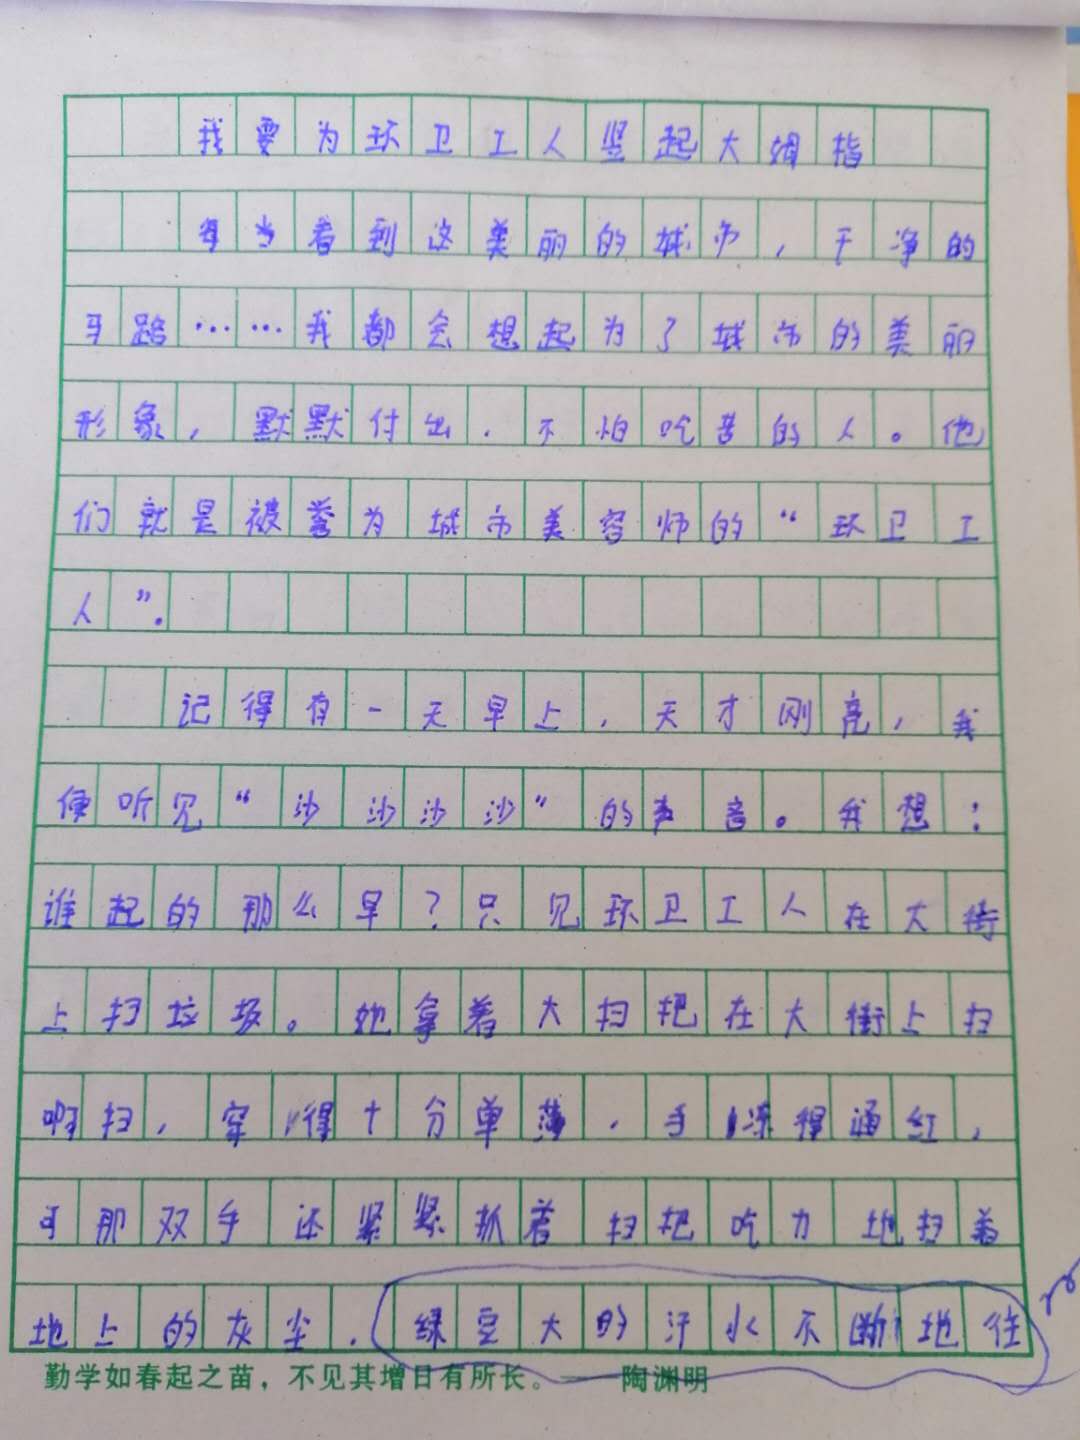 我要为环卫工人竖起大姆指
每当看到这美丽的城市，干净的
马路……我都会想起为了城市的美丽
形象，默默付出，不怕吃苦的人。他
们就是被誉为城市美容师的“环卫工
人”。
记得有一天早上，天才刚亮，我
便听见“沙沙沙沙”的声音。我想：
谁起的那么早？只见环卫工人在大街
上扫垃圾。她拿着大扫把在大街上扫
啊扫，穿得十分单薄，手冻得通红，
可那双手还紧紧抓着扫把吃力地扫着
地上的灰尘，绿豆大的汗水不断地往
勤学如春起之苗，不见其增日有所长。——陶渊明